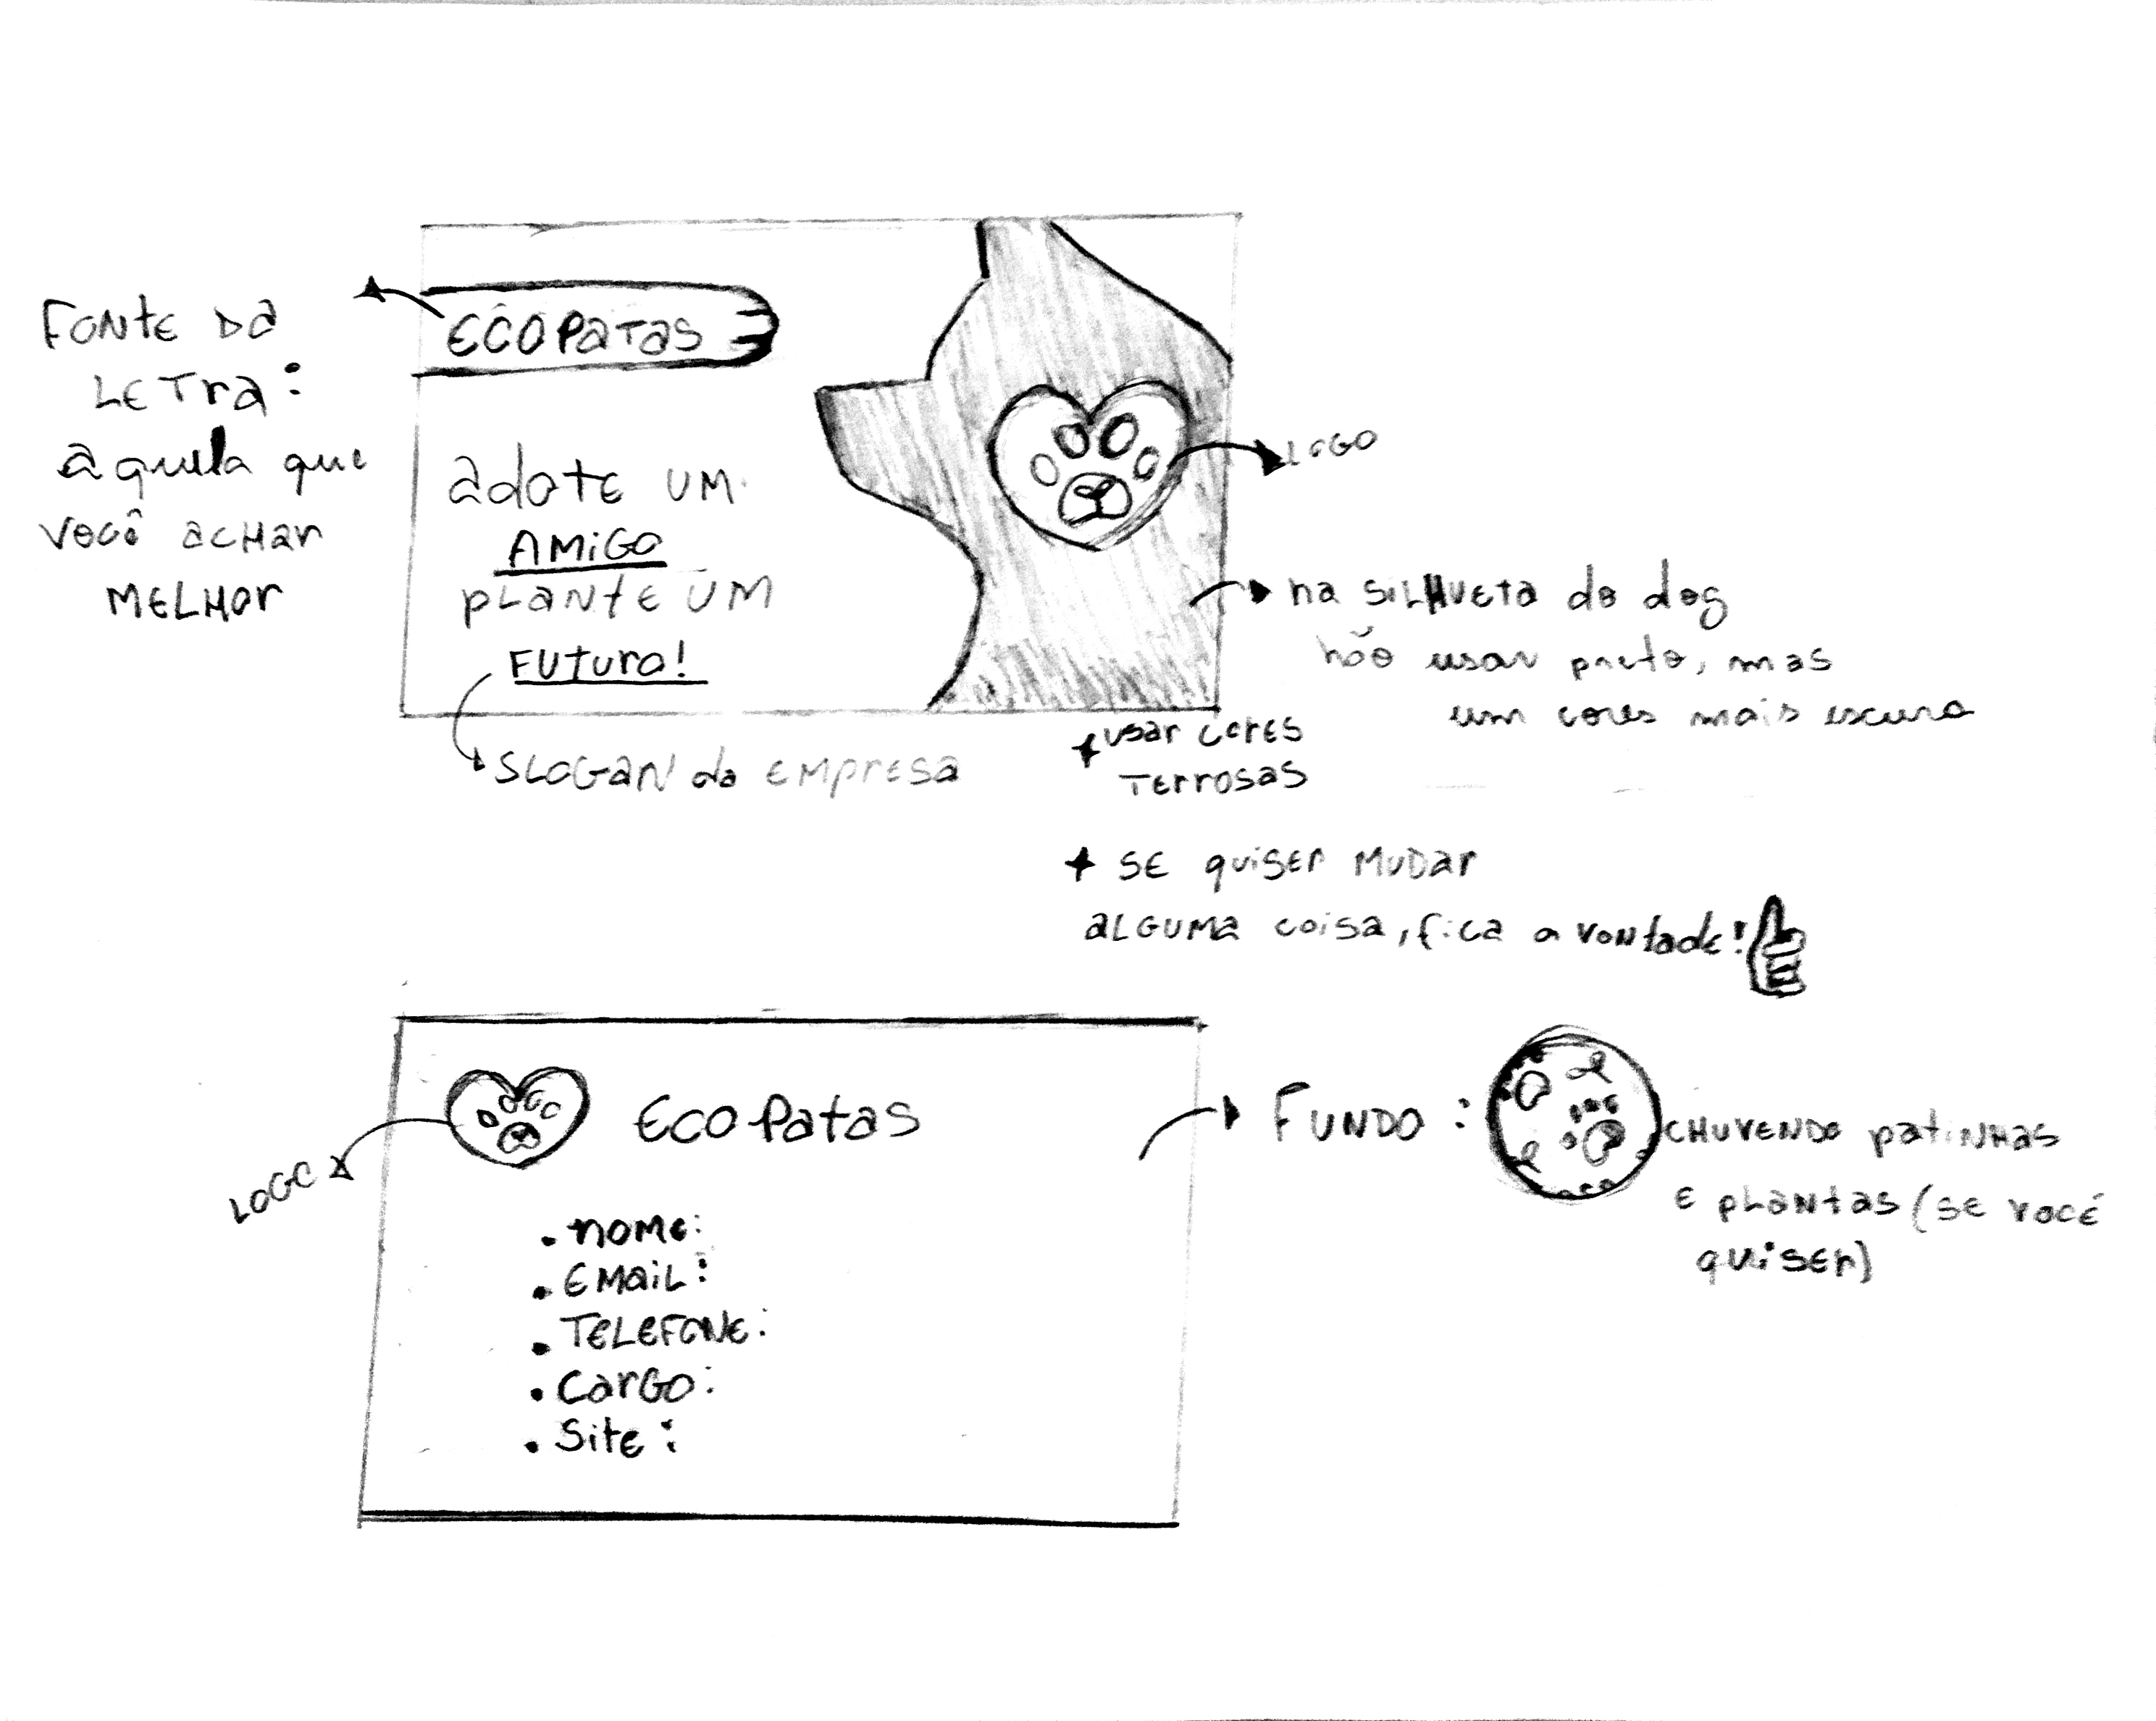 FONTE DA
LETRA:
aquela que
você achar
MELHOR
ECOPATAS
adote um
AMIGO
PLANTE UM
FUTURO!
SLOGAN da EMPRESA
LOGO
na SILHUETA do dog
não usar preto, mas
um cores mais escura
+ usar cores
TERROSAS
+ SE quiser MUDAR
ALGUMA coisa, fica a vontade!
LOGO
ECO Patas
. NOME:
. EMAIL:
. TELEFONE:
. CARGO:
. Site:
FUNDO:
CHUVENDO patinhas
E plantas (se você
quiser)